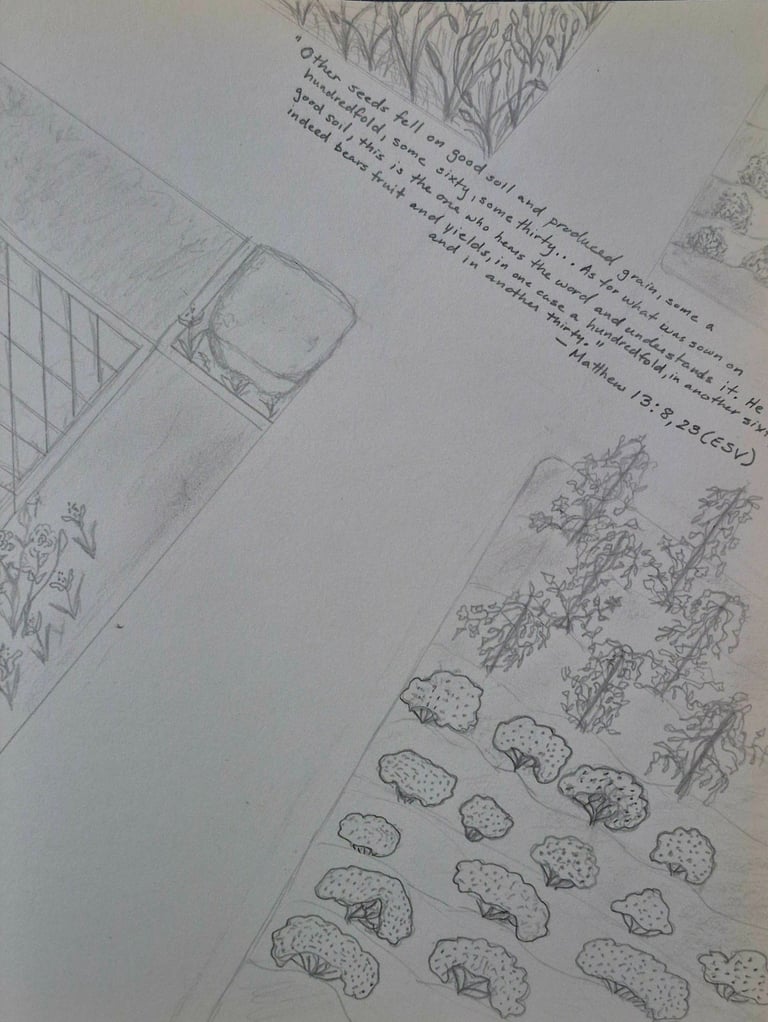 "Other seeds fell on good soil and produced grain, some a
hundredfold, some sixty, some thirty... As for what was sown on
good soil, this is the one who hears the word and understands it. He
indeed bears fruit and yields, in one case a hundredfold, in another sixty
and in another thirty."
- Matthew 13:8, 23 (ESV)